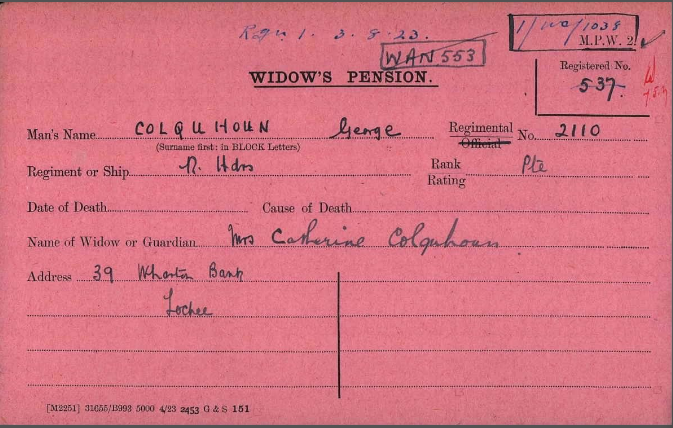 1. 3. 8. 23.
1/Wa/1038
M.P.W. 2.
WAN 553
WIDOW'S PENSION.
Registered No.
537.
Man's Name COLQUHOUN George Regimental Official No. 2110
(Surname first: in BLOCK Letters)
Regiment or Ship R. Hdrs Rank Rating Pte
Date of Death Cause of Death
Name of Widow or Guardian Mrs Catherine Colquhoun
Address 39 Wharton Bank
Lochee
[M2251] 31655/B993 5000 4/23 2453 G & S 151